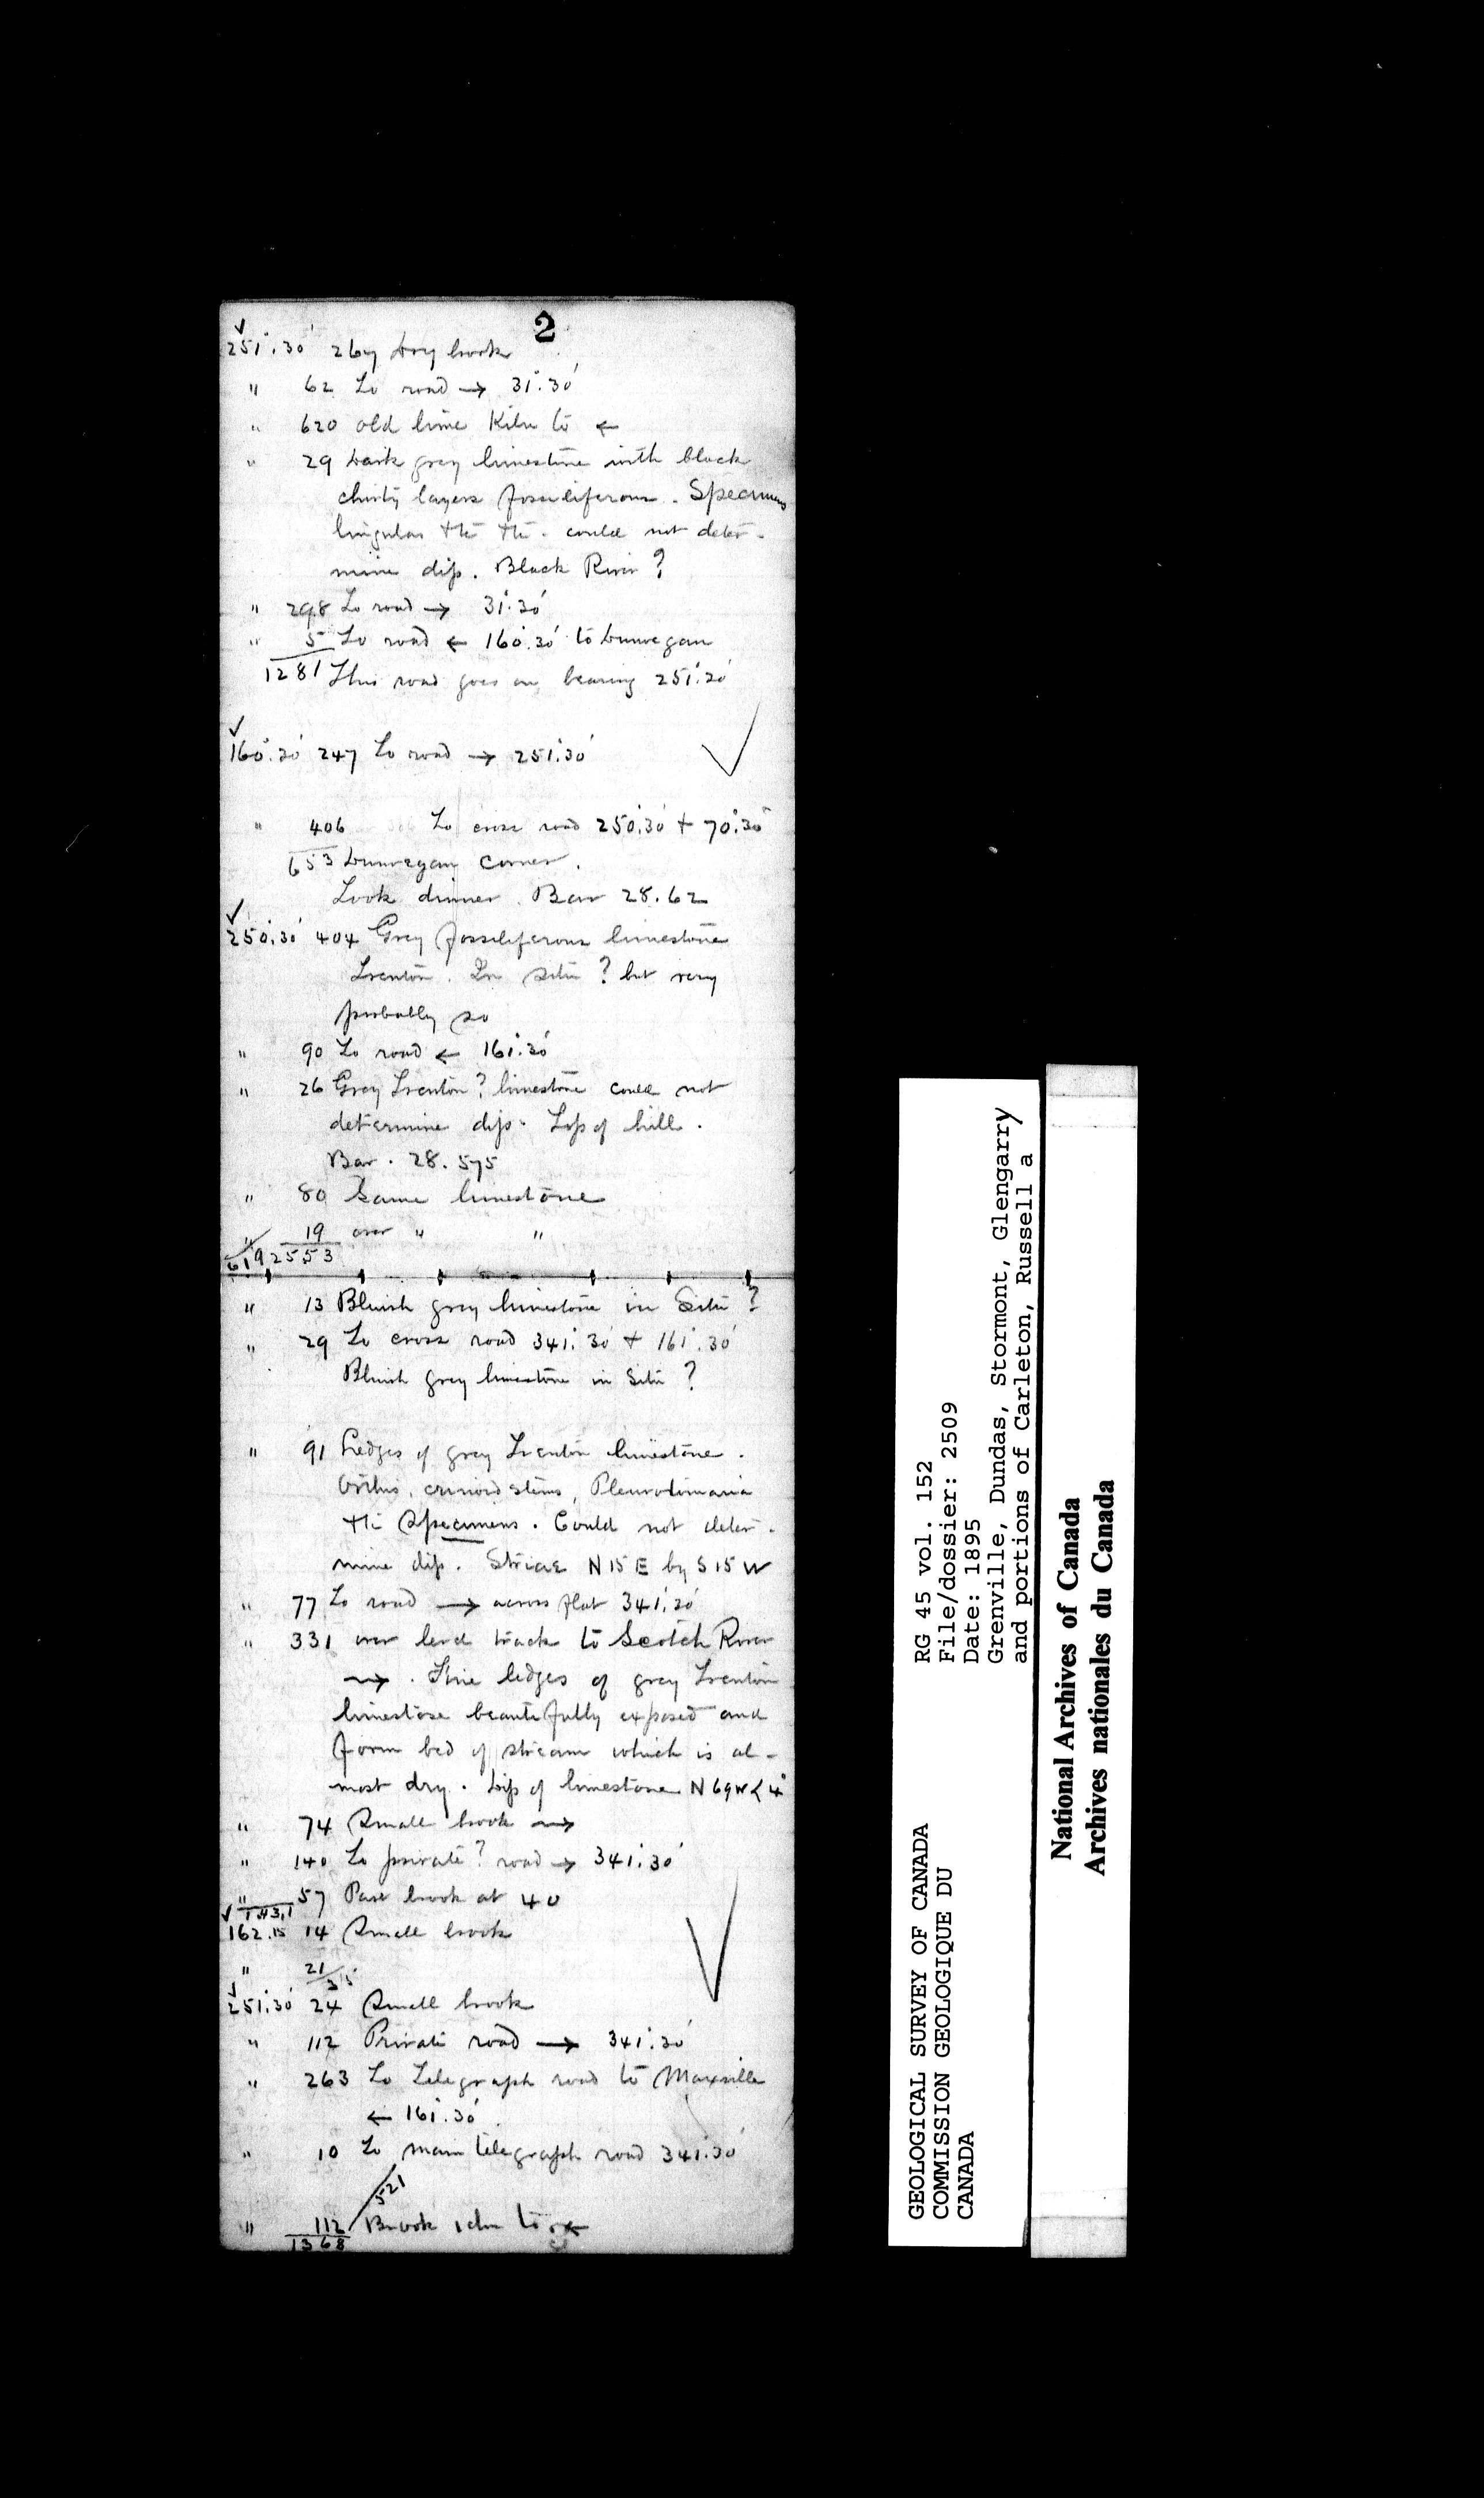 2
251°.30' 267 Dry brook
" 62 To road → 31°.30'
" 620 old lime Kiln to ←
" 29 Dark grey limestone with black
cherty layers fossiliferous. Specimens
lingulas etc etc. could not deter-
mine dip. Black River?
" 298 To road → 31°.30'
" 5 To road ← 160°.30' to Dunvegan
1281 This road goes on bearing 251°.30'
160°.30' 247 To road → 251°.30'
" 406 To cross road 250°.30' + 70°.30'
653 Dunvegan corner.
Took dinner. Bar 28.62
250°.30' 404 Grey fossiliferous limestone
Trenton. In situ? but very
probably so
" 90 To road ← 161°.30'
" 26 Grey Trenton? limestone could not
determine dip. Top of hill.
Bar. 28.575
" 80 Same limestone
" 19 over " "
619 2553
" 13 Bluish grey limestone in Situ?
" 29 To cross road 341°.30' + 161°.30'
Bluish grey limestone in Situ?
" 91 Ledges of grey Trenton limestone.
Orthis, crinoid stems, Pleurotomaria
etc Specimens. Could not deter-
mine dip. Striae N 15 E by S 15 W
" 77 To road → across flat 341°.30'
" 331 over level track to Scotch River
→. Fine ledges of grey Trenton
limestone beautifully exposed and
form bed of stream which is al-
most dry. Dip of limestone N 69 W < 4°
" 74 Small brook →
" 140 To private? road → 341°.30'
" 57 Pass brook at 40
1431
162.15 14 Small brook
" 21
35
251°.30' 24 Small brook
" 112 Private road → 341°.30'
" 263 To Telegraph road to Maxville
← 161°.30'
" 10 To main telegraph road 341°.30'
521
" 112 Brook to ←
1368
GEOLOGICAL SURVEY OF CANADA
COMMISSION GEOLOGIQUE DU
CANADA
RG 45 vol. 152
File/dossier: 2509
Date: 1895
Grenville, Dundas, Stormont, Glengarry
and portions of Carleton, Russell a
National Archives of Canada
Archives nationales du Canada